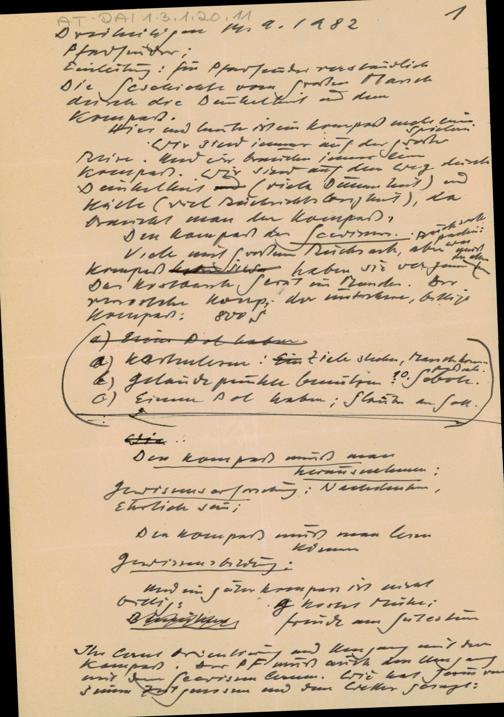 AT-DA 1.3.1.20.11
1
Dreiheiligen 14.9.1982
Pfadfinder;
Einleitung: für Pfadfinder verständlich
Die Geschichte vom großen Marsch
durch die Dunkelheit und dem
Kompaß.
Hier und heute ist ein Kompaß mehr
Wir sind immer auf der
Reise. Und wir brauchen immer den
Kompaß. Wir sind auf dem Weg durch
Dunkelheit (viele Dummheit) und
Kälte (viel Rücksichtslosigkeit), da
braucht man den Kompaß.
Den Kompaß des Gewissens.
Viele mit großem Rucksack, aber
Kompaß haben sie vergessen
Das kostbarste Gerät im Rucksack. Der
Komp. der moderne,
Kompaß: 800 S
a) Einen Pol haben
a) Kartenlesen: Ziele
b) Geländepunkte benutzen: 10 Gebote.
c) Einen Pol haben; Glaube an Gott.
Den Kompaß muß man
herausnehmen:
Gewissenserforschung: Nachdenken,
Ehrlich sein;
Den Kompaß muß man lesen
können
Gewissensbildung:
Und ein guter Kompaß ist nicht
billig: kostet Mühe;
Freude am Guten
Ihr lernt Orientierung und Umgang mit dem
Kompaß. Der PF muß auch den Umgang
mit dem Gewissen lernen. Wie hat
seinen und dem gesagt: